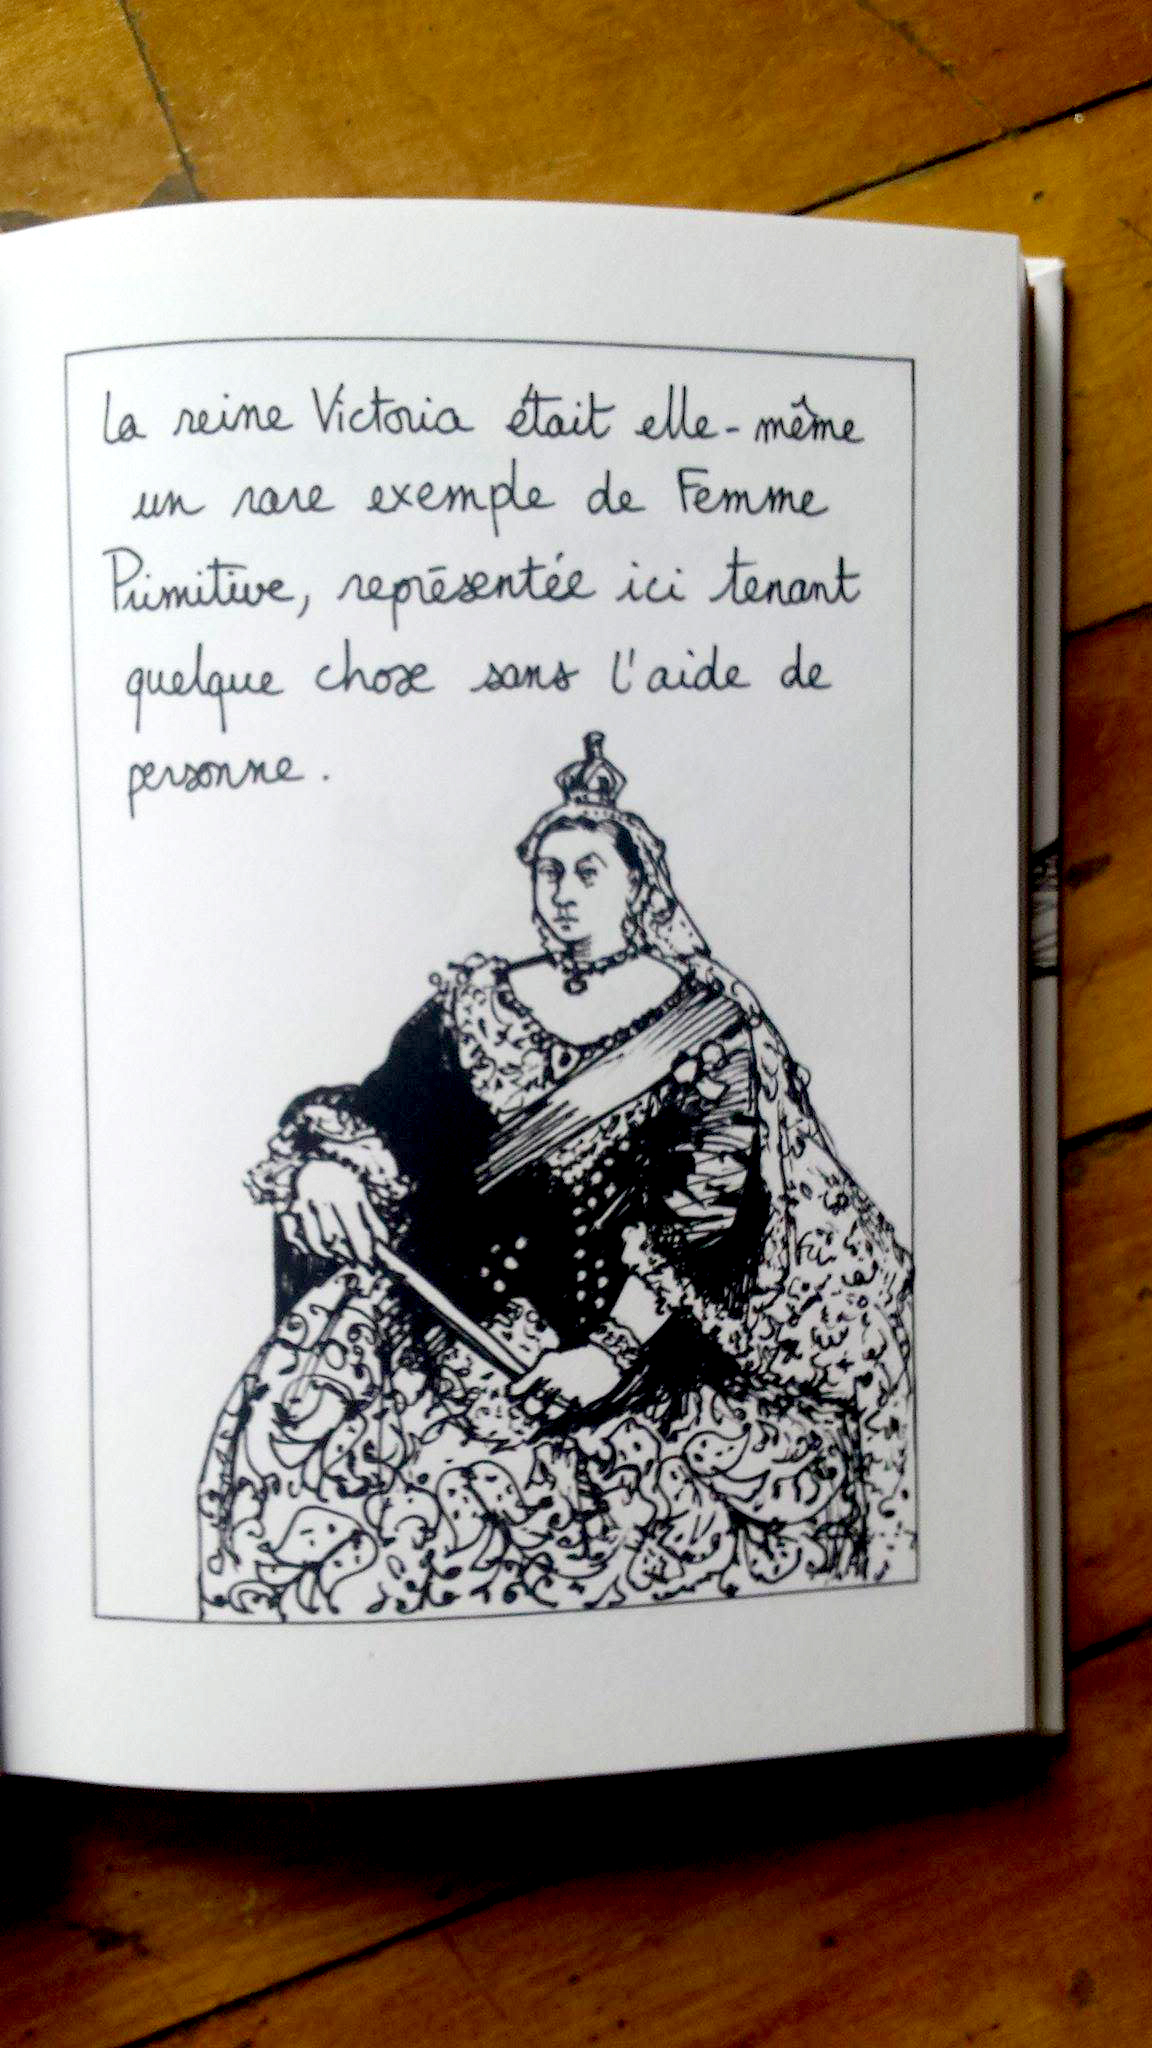 La reine Victoria était elle-même
un rare exemple de Femme
Primitive, représentée ici tenant
quelque chose sans l'aide de
personne.